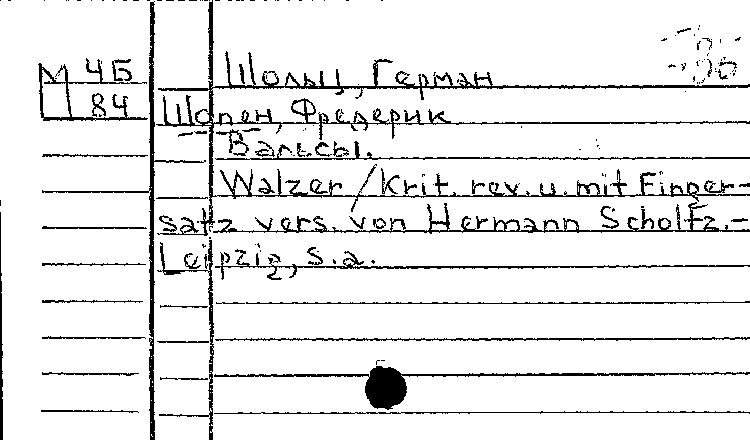 М 4Б
84
Шольц, Герман
Шопен, Фредерик
Вальсы.
Walzer / Krit. rev. u. mit Finger-
satz vers. von Hermann Scholtz.-
Leipzig, s.a.